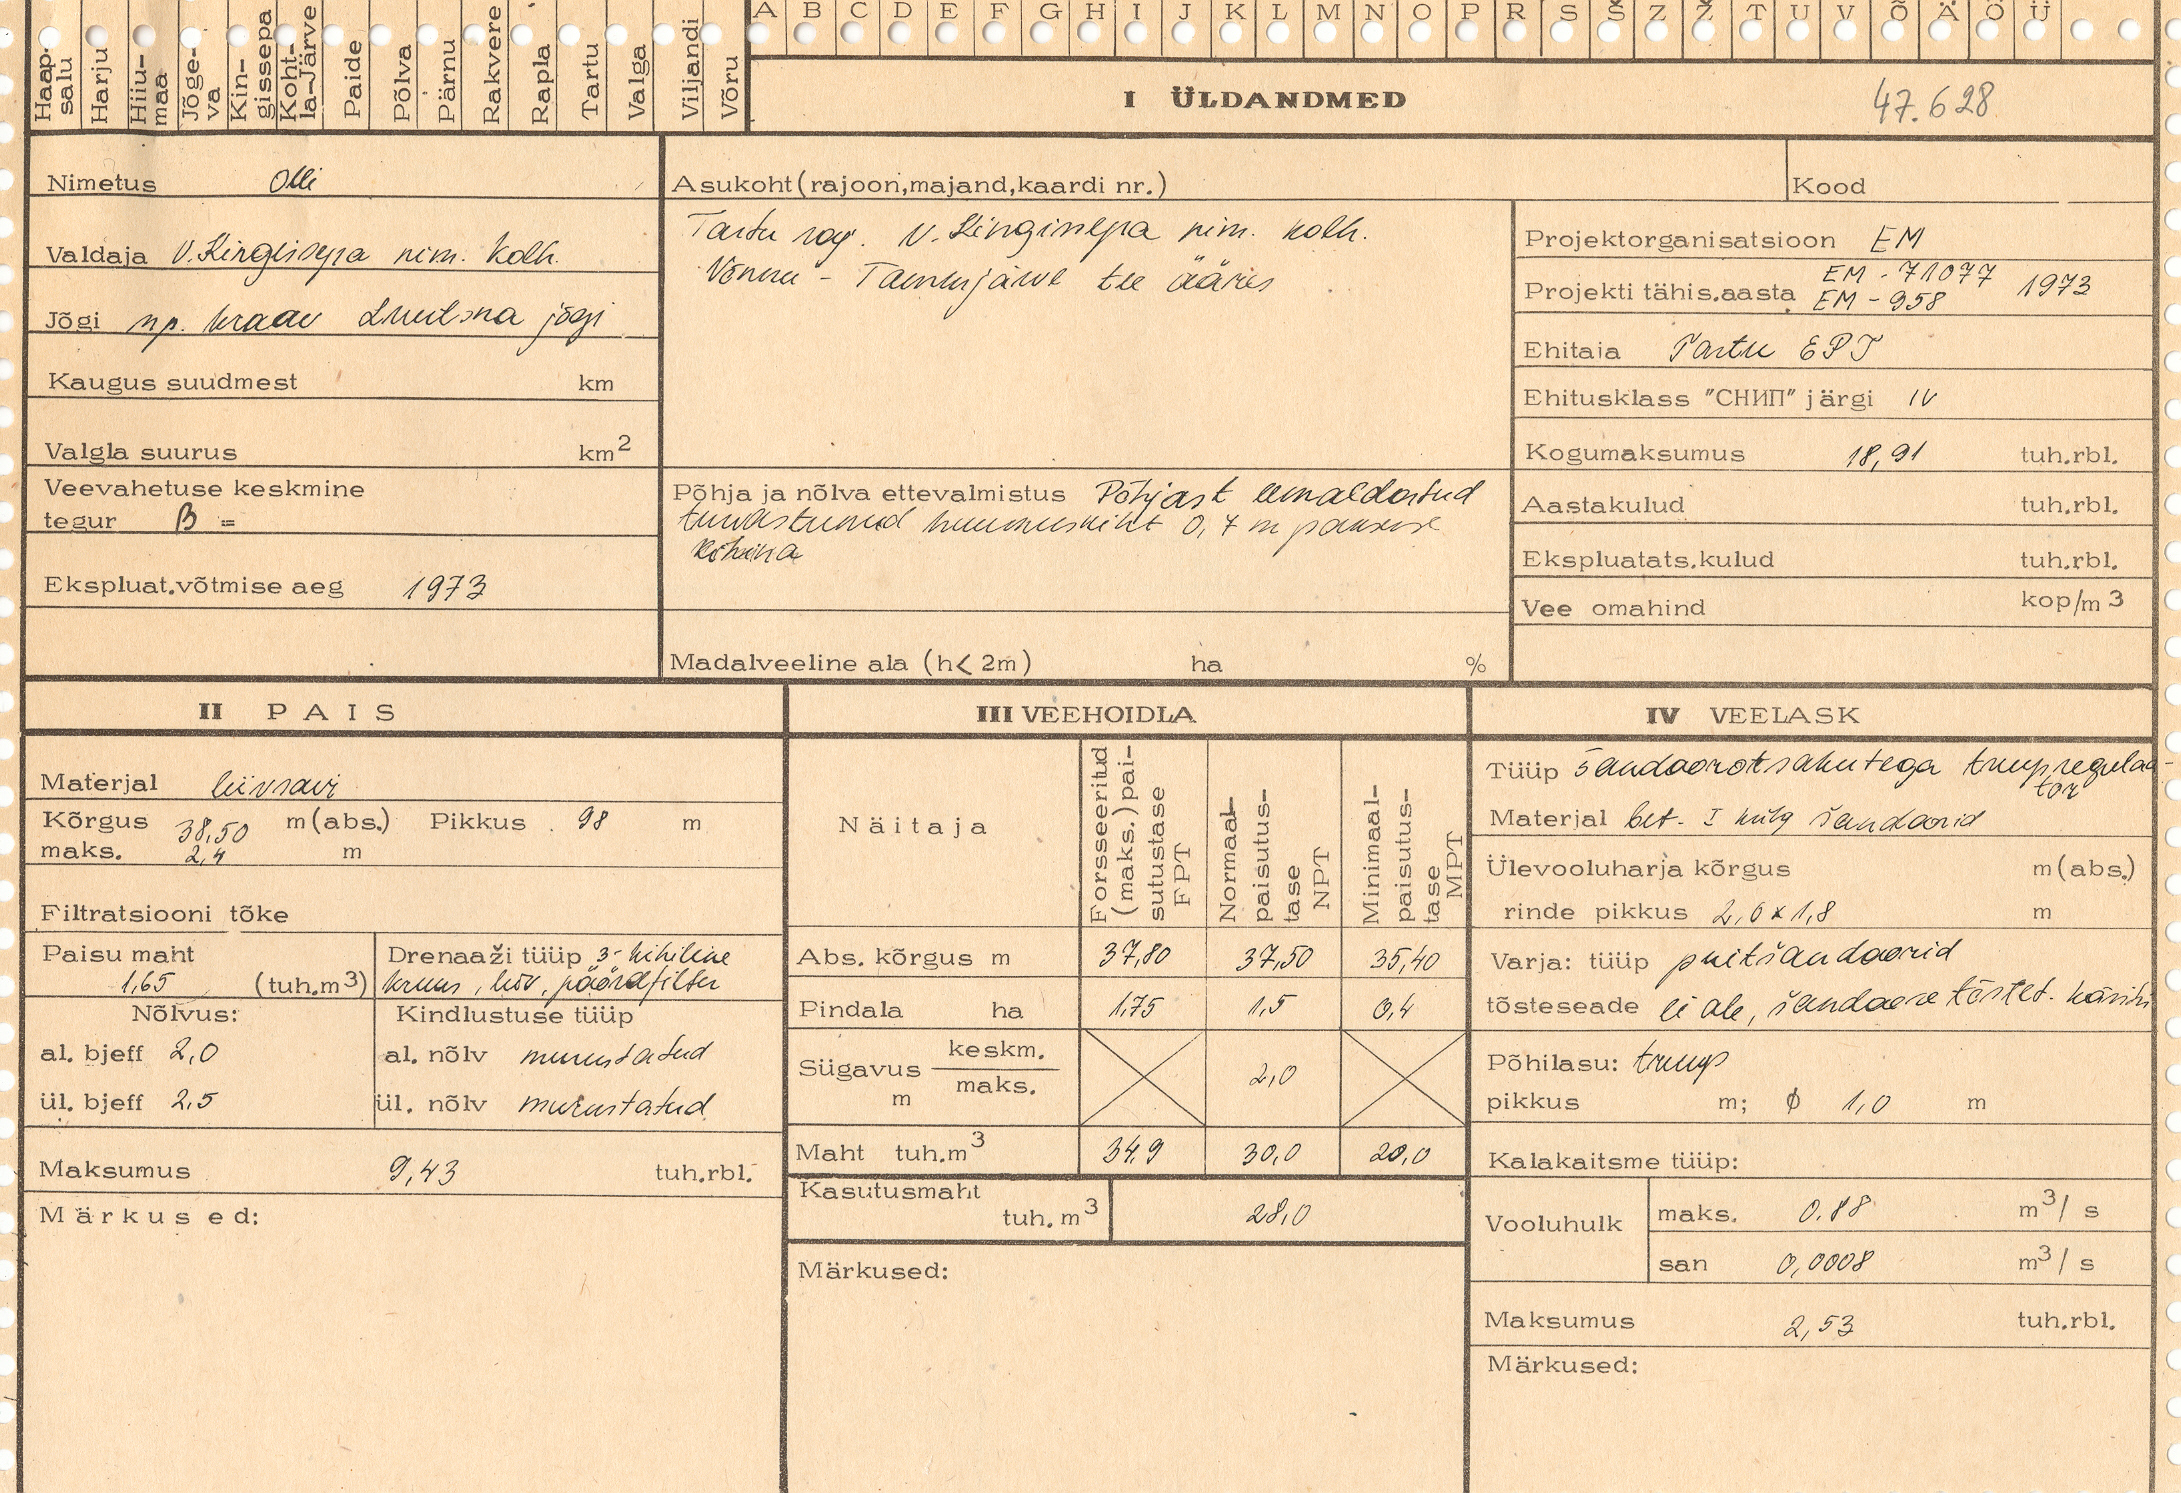 A B C D E F G H I J K L M N O P R S Š Z Ž T U V Õ Ä Ö Ü
Haap-
salu
Harju
Hiiu-
maa
Jõge-
va
Kin-
gissepa
Koht-
la-Järve
Paide
Põlva
Pärnu
Rakvere
Rapla
Tartu
Valga
Viljandi
Võru
I ÜLDANDMED
47.628
Nimetus Olli
Valdaja V. Kingissepa nim. kolh.
Jõgi np. kraav Luutsna jõgi
Kaugus suudmest km
Valgla suurus km2
Veevahetuse keskmine
tegur β =
Ekspluat.võtmise aeg 1973
Asukoht (rajoon, majand, kaardi nr.)
Tartu raj. V. Kingissepa nim. kolh.
Võnnu - tee ääres
Põhja ja nõlva ettevalmistus Põhjast eemaldatud
huumuskiht 0,7 m paksuse
kihina
Madalveeline ala (h< 2m) ha %
Kood
Projektorganisatsioon EM
Projekti tähis.aasta EM - 71077 1973
EM - 958
Ehitaja Tartu EPT
Ehitusklass "СНИП" järgi IV
Kogumaksumus 18,91 tuh.rbl.
Aastakulud tuh.rbl.
Ekspluatats.kulud tuh.rbl.
Vee omahind kop/m3
II PAIS
Materjal liivsavi
Kõrgus 38,50 m (abs.) Pikkus 98 m
maks. 2,4 m
Filtratsiooni tõke
Paisu maht
1,65 (tuh.m3)
Drenaaži tüüp 3-kihiline
kruus, liiv, pöördfilter
Nõlvus:
al. bjeff 2,0
ül. bjeff 2,5
Kindlustuse tüüp
al. nõlv murustatud
ül. nõlv murustatud
Maksumus 9,43 tuh.rbl.
Märkused:
III VEEHOIDLA
Näitaja
Forsseeritud
(maks.) pai-
sutustase
FPT
Normaal-
paisutus-
tase
NPT
Minimaal-
paisutus-
tase
MPT
Abs. kõrgus m 37,80 37,50 35,40
Pindala ha 1,75 1,5 0,4
Sügavus keskm. 2,0
maks.
m
Maht tuh.m3 34,9 30,0 20,0
Kasutusmaht
tuh. m3 28,0
Märkused:
IV VEELASK
Tüüp šandoorotsakutega truupregulaa-
tor
Materjal bet. I külg šandoorid
Ülevooluharja kõrgus m (abs.)
rinde pikkus 2,0 x 1,8 m
Varja: tüüp puitšandoorid
tõsteseade ei ole, šandoore tõstet. käsitsi
Põhilasu: truup
pikkus m; ϕ 1,0 m
Kalakaitsme tüüp:
Vooluhulk maks. 0,88 m3/s
san 0,0008 m3/s
Maksumus 2,53 tuh.rbl.
Märkused: